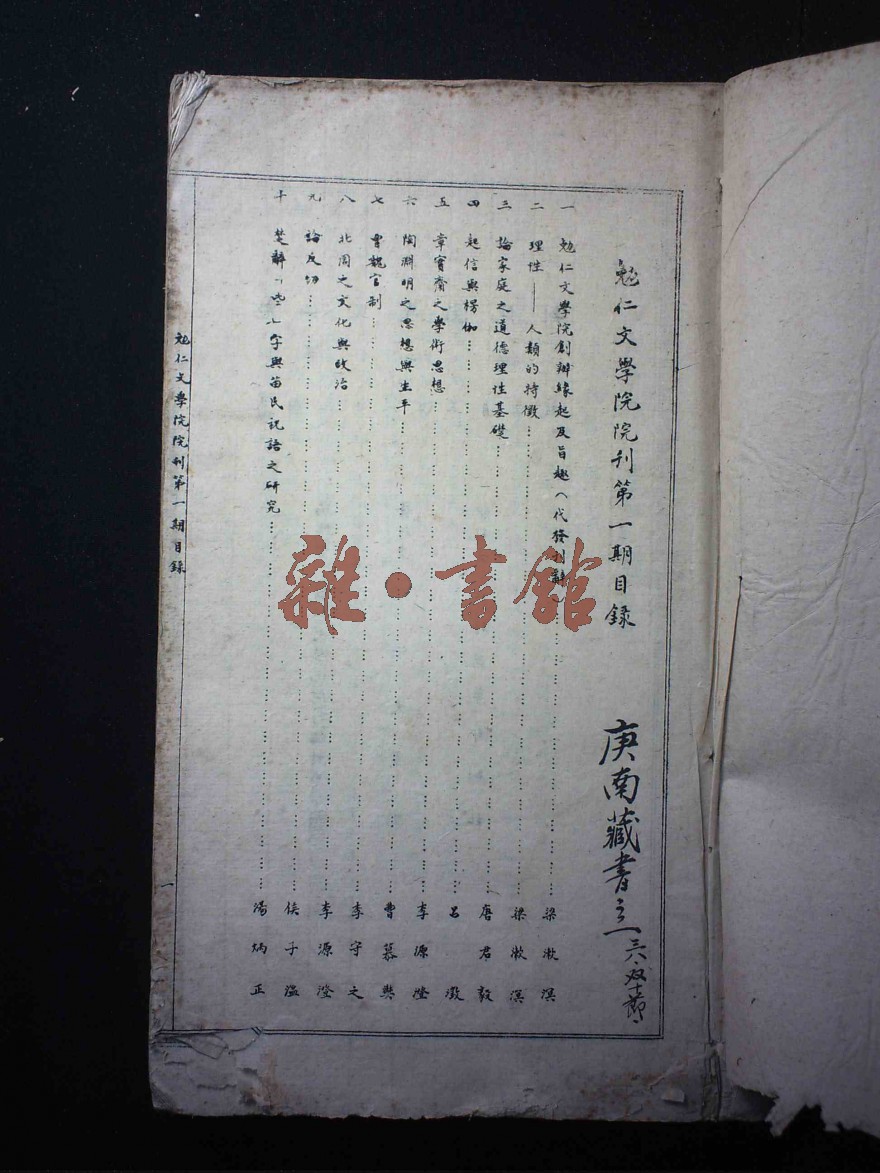 勉仁文學院院刊第一期目錄
庚南藏書之一 三六·双十節
一 勉仁文學院創辦緣起及旨趣（代發刊辭 梁漱溟
二 理性——人類的特徵 梁漱溟
三 論家庭之道德理性基礎 唐君毅
四 起信與楞伽 呂澂
五 章實齋之學術思想 李源澄
六 陶淵明之思想與生平 曹慕樊
七 曹魏官制 李守之
八 北周之文化與政治 李源澄
九 論反切 侯子溫
十 楚辭「些」字與苗民祝語之研究 湯炳正
勉仁文學院院刊第一期目錄
一
雜·書館